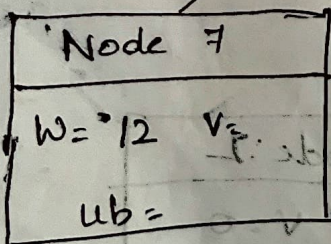 Node 7
W= 12 V=
ub=